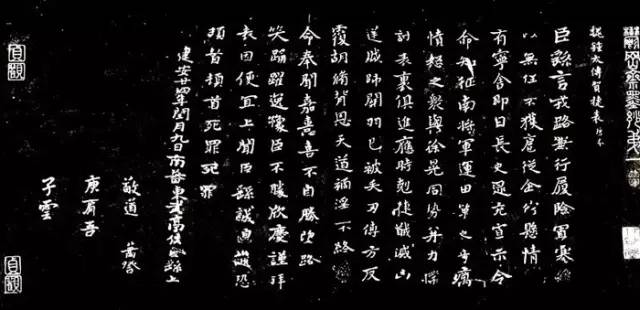 鬱岡齋墨妙第一
魏鍾太傅賀捷表
臣繇言戎路兼行履險冒寒
以無任不獲扈從企佇懸情
有寧舍即日長史逯充宣示令
命知征南將軍運田單之奇厲
憤怒之眾與徐晃同勢并力撲
討表裏俱進應時剋捷馘滅凶
逆賊帥關羽已被矢刃傅方反
覆胡脩背恩天道禍淫不終
今奉聞嘉憙喜不自勝望路
笑踊躍逸豫臣不勝欣慶謹拜
表因便宜上聞臣繇誠惶誠恐
頓首頓首死罪死罪
建安廿四年閏月九日南蕃東武亭侯臣繇上
敬道
庾肩吾
子雲
貞觀
貞觀